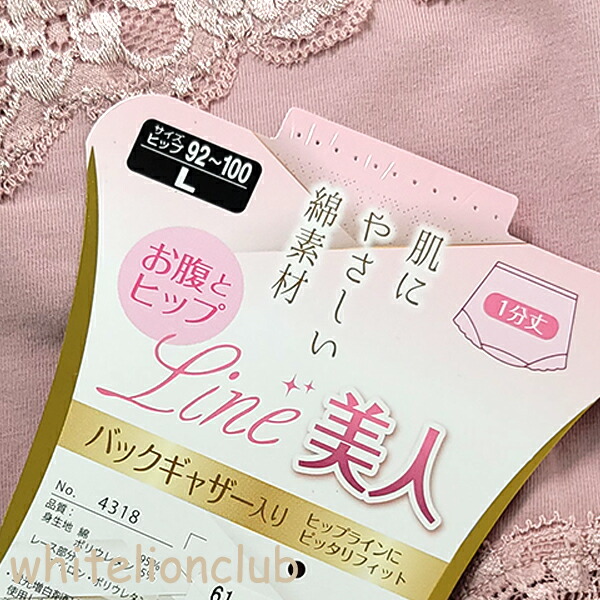 サイズ
ヒップ 92~100
L
肌に
やさしい
綿素材
お腹と
ヒップ
1分丈
Line 美人
バックギャザー入り
ヒップラインに
ピッタリフィット
No. 4318
品質:
身生地 綿 95%
ポリウレタン
レース部分
ナイロン・ポリウレタン
61
whitelionclub